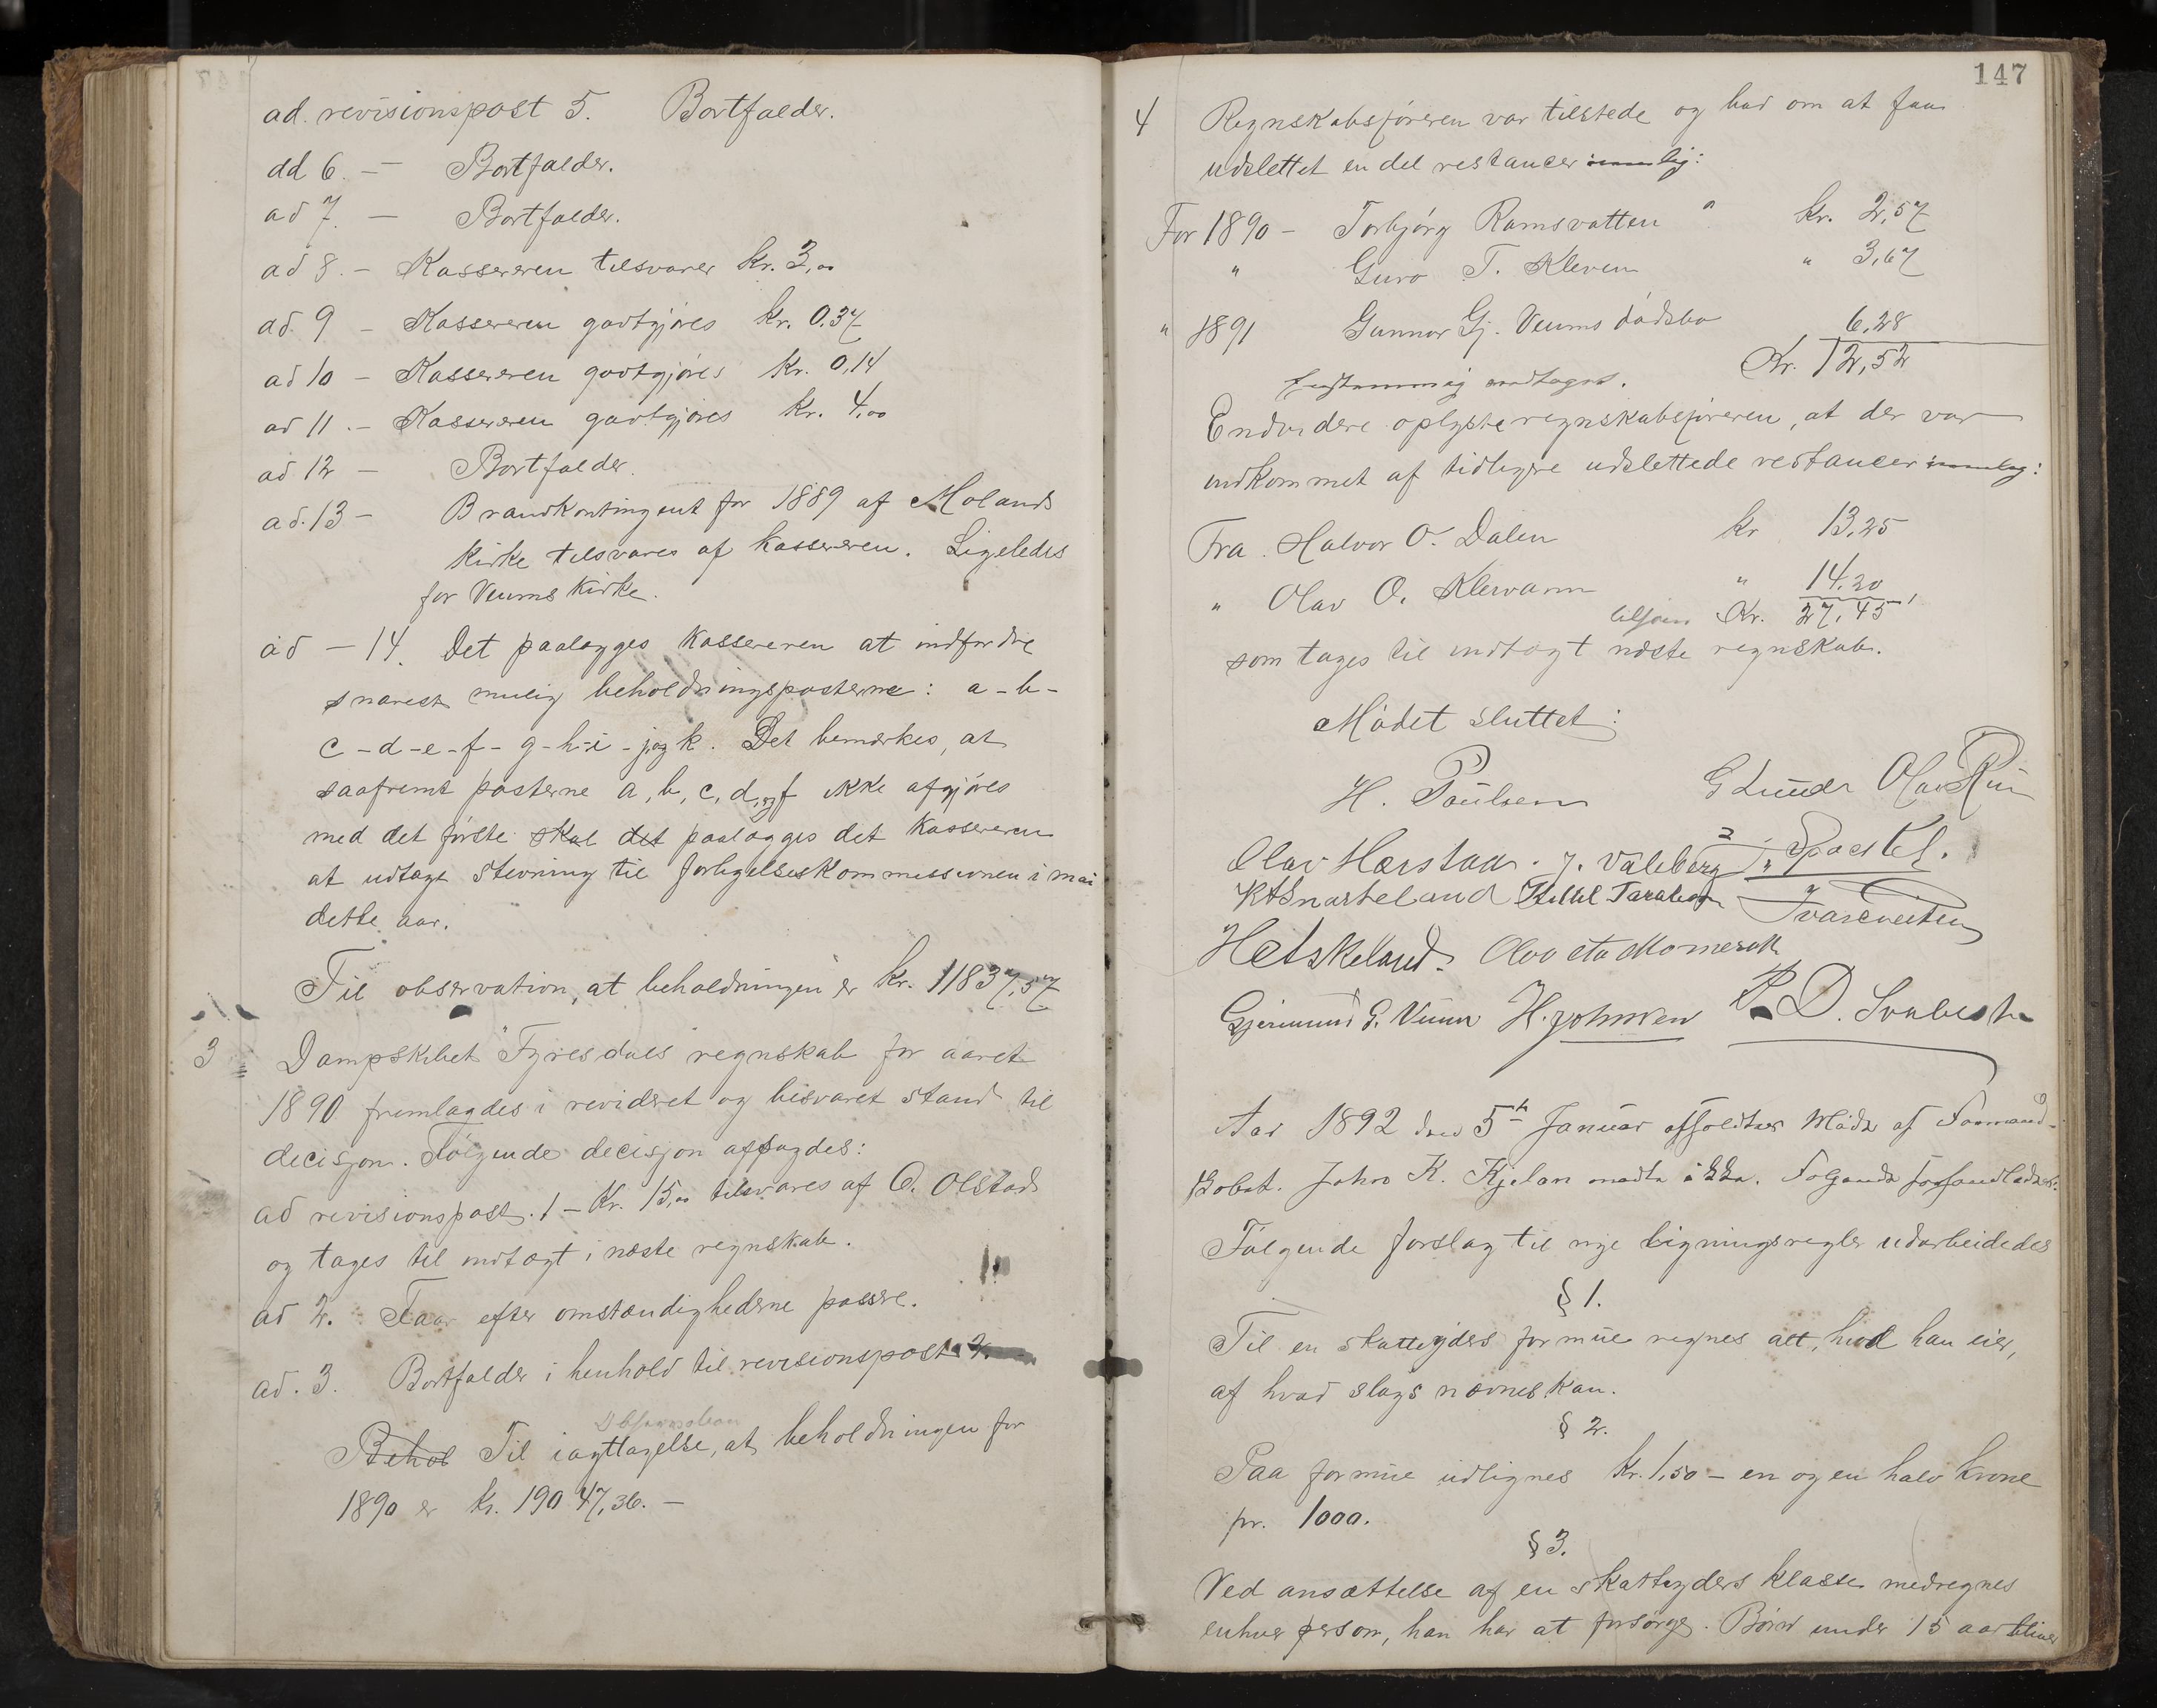 ad. revisionspost 5. Bortfalder.
ad 6. — Bortfalder.
ad 7. — Bortfalder.
ad 8. — Kassereren tilsvarer kr. 3,00
ad. 9 — Kassereren godtgjøres kr. 0,37
ad 10 — Kassereren godtgjøres kr. 0,14
ad 11. — Kassereren godtgjøres kr. 4,00
ad 12 — Bortfalder.
ad. 13 — Brandkontingent for 1889 af Molands
kirke tilsvares af kassereren. Ligeledes
for Veums kirke.
ad — 14. Det paalægges kassereren at indfordre
snarest mulig beholdningsposterne: a - b -
c - d - e - f - g - h - i - j og k. Det bemærkes, at
saafremt posterne a, b, c, d, og f ikke afgjøres
med det første skal det paalægges det kassereren
at udtage stevning til forligelseskommissionen i mai
dette aar.
Til observation, at beholdningen er kr. 11837,57
3 Dampskibet "Fyresdals regnskab for aaret
1890 fremlagdes i revideret og besvaret stand til
decisjon. Følgende decisjon afsagdes:
ad revisionspost. 1 — Kr. 15,00 tilsvares af O. Olstad
og tages til indtægt i næste regnskab.
ad 2. Faar efter omstændighederne passere.
ad. 3. Bortfalder i henhold til revisionspost 2.
Observation
Behol Til iagttagelse, at beholdningen for
1890 er kr. 19047,36. —
147
4 Regnskabsføreren var tilstede og bad om at faa
udslettet en del restancer nemlig:
For 1890 — Torbjørg Ramsvatten " kr. 2,57
" Guro T. Kleven " 3,67
" 1891 Gunnar Gj. Veums dødsbo 6,28
Kr. 12,52
Enstemmig vedtaget.
Endvidere oplyste regnskabsføreren, at der var
indkommet af tidligere udslettede restancer nemlig:
Fra Halvor O. Dalen kr 13,25
" Olav O. Klevann " 14,20
tilsam Kr. 27,45,
som tages til indtægt næste regnskab.
Mødet sluttet:
H. Paulsen G Lunde Olav Rui
Olav Hærstad. J. Valeberg
K A Snarteland
H Utskeland. Olav
Gjermund G. Veum H. Johnsen P. D.
Aar 1892 den 5te Januar afholdtes Møde af Formand-
skabet. John K. Kjelan mødte ikke. Følgende forhandledes:
Følgende forslag til nye ligningsregler udarbeidedes
§ 1.
Til en skatteyders formue regnes alt, hvad han eier,
af hvad slags nævnes kan.
§ 2.
Paa formue udlignes Kr. 1,50 — en og en halv krone
pr. 1000.
§ 3.
Ved ansættelse af en skatteyders klasse medregnes
enhver person, han har at forsørge. Børn under 15 aar bliver